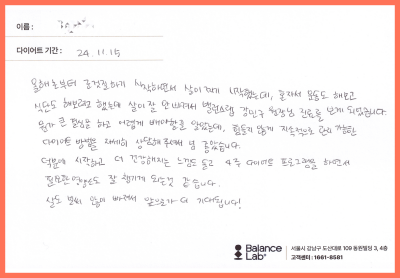 이름 :
다이어트 기간 : 24. 11. 15
올해초부터 군것질하기 시작하면서 살이 찌기 시작했는데, 혼자서 운동도 해보고
식단도 해보려고 했는데 살이 잘 안 빠져서 밸런스랩 강민구 원장님 진료를 보게 되었습니다.
뭔가 큰 결심을 하고 어렵게 해야할줄 알았는데, 힘들지 않게 지속적으로 관리 가능한
다이어트 방법을 자세히 상담해주셔서 넘 좋았습니다.
덕분에 시작하고 더 건강해지는 느낌도 들고 4주 다이어트 프로그램을 하면서
필요한 영양소도 잘 챙기게 되는것 같습니다.
살도 벌써 많이 빠져서 앞으로가 더 기대됩니다!
Balance Lab
서울시 강남구 도산대로 109 동원빌딩 3, 4층
고객센터 : 1661-8581